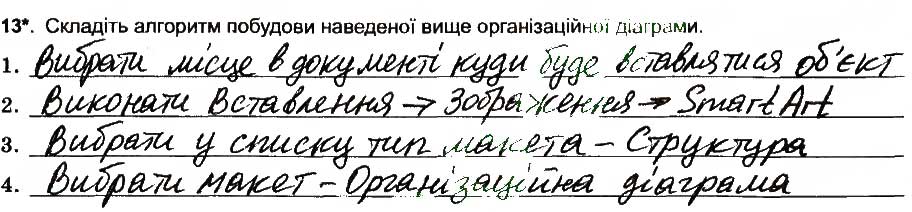 13*. Складіть алгоритм побудови наведеної вище організаційної діаграми.
1. Вибрати місце в документі куди буде вставлятися об'єкт
2. Виконати Вставлення → Зображення → Smart Art
3. Вибрати у списку тип макета – Структура
4. Вибрати макет – Організаційна діаграма